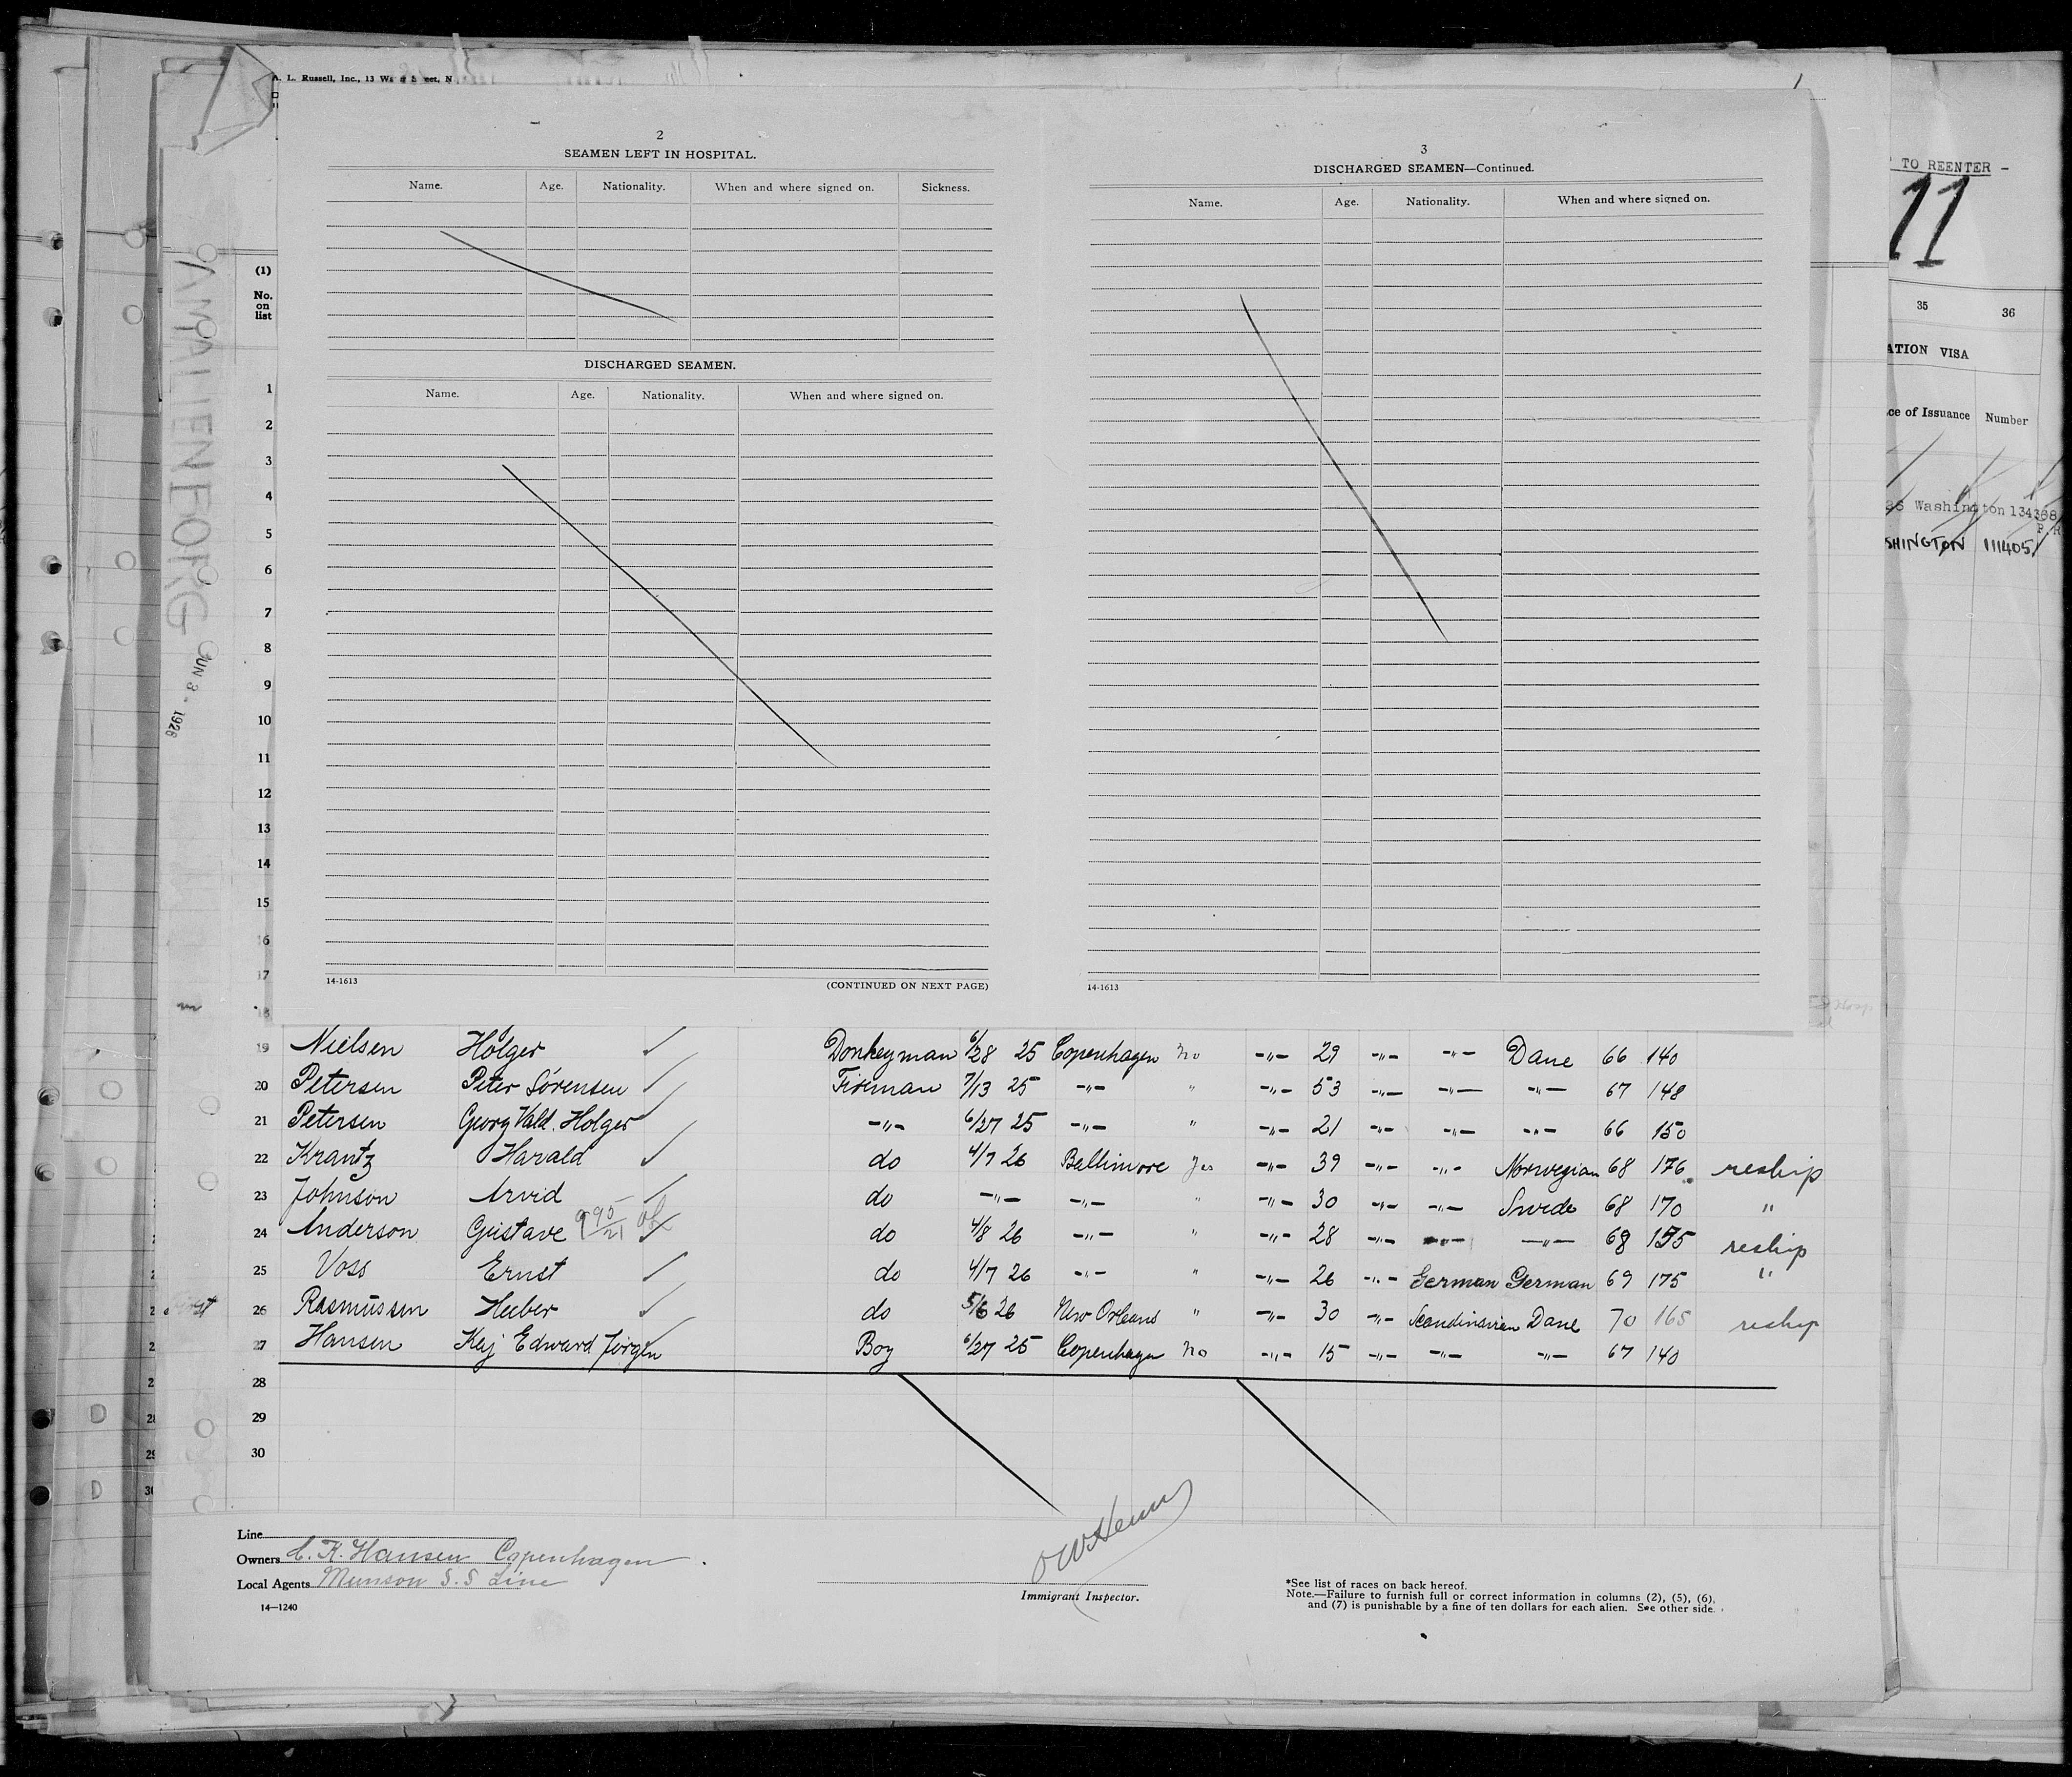 A. L. Russell, Inc., 13 Wa
TO REENTER -
11
2
SEAMEN LEFT IN HOSPITAL.
Name. Age. Nationality. When and where signed on. Sickness.
DISCHARGED SEAMEN.
Name. Age. Nationality. When and where signed on.
14-1613
(CONTINUED ON NEXT PAGE)
3
DISCHARGED SEAMEN—Continued.
Name. Age. Nationality. When and where signed on.
14-1613
35 36
ATION VISA
ce of Issuance Number
26 Washington 134368
P.R
SHINGTON 111405
AMALIENBORG
JUN 3 - 1926
(1)
No.
on
list
1
2
3
4
5
6
7
8
9
10
11
12
13
14
15
16
17
18
19 Nielsen Holger Donkeyman 6/28 25 Copenhagen No -"- 29 -"- -"- Dane 66 140
20 Petersen Peter Sörensen Fireman 7/13 25 -"- " -"- 53 -"- -"- -"- 67 148
21 Petersen Georg Vald. Holger -"- 6/27 25 -"- " -"- 21 -"- -"- -"- 66 150
22 Krantz Harald do 4/7 26 Baltimore Yes -"- 39 -"- -"- Norwegian 68 176 reship
23 Johnson Arvid do -"- -"- " -"- 30 -"- -"- Swede 68 170 "
24 Anderson Gustave do 4/8 26 -"- " -"- 28 -"- -"- -"- 68 155 reship
25 Voss Ernst do 4/7 26 -"- " -"- 26 -"- German German 69 175 "
26 Rasmussen Heber do 5/6 26 New Orleans " -"- 30 -"- Scandinavian Dane 70 165 reship
27 Hansen Kaj Edward Jörgen Boy 6/27 25 Copenhagen No -"- 15 -"- -"- -"- 67 140
28
29
30
Line
Owners C. K. Hansen Copenhagen.
Local Agents Munson S.S Line
14—1240
Immigrant Inspector.
*See list of races on back hereof.
Note.—Failure to furnish full or correct information in columns (2), (5), (6),
and (7) is punishable by a fine of ten dollars for each alien. See other side.